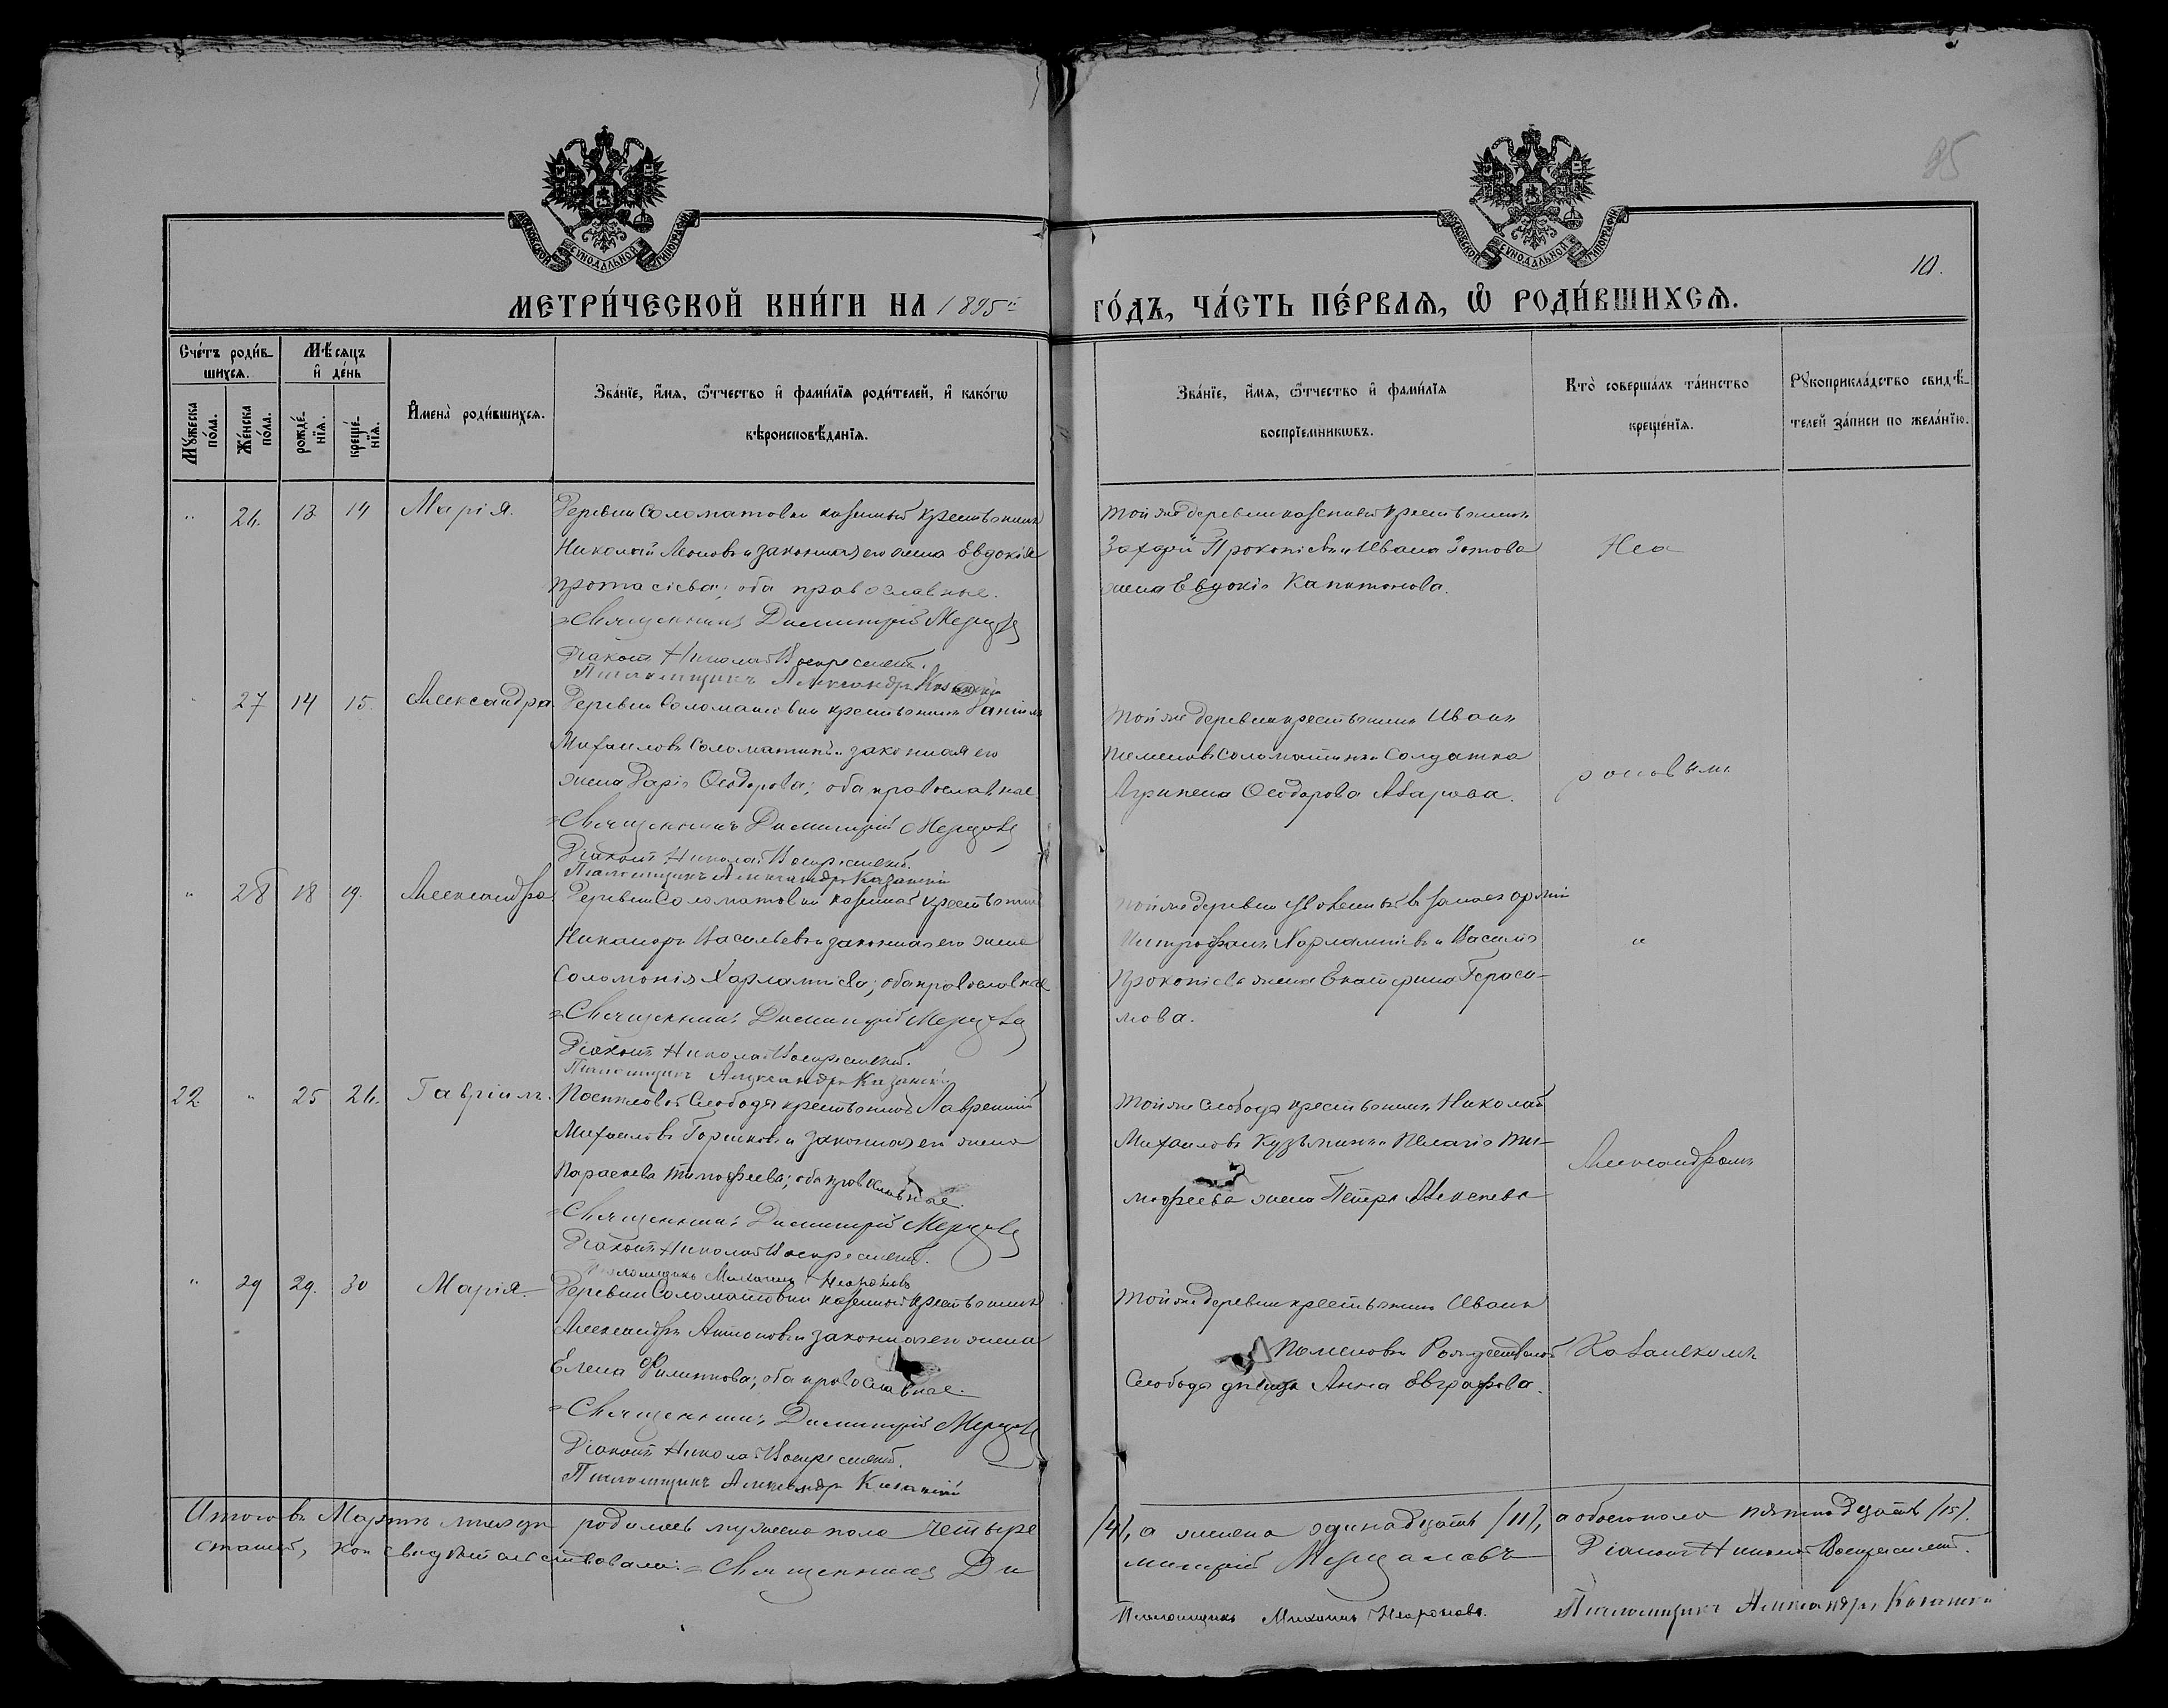 95
10.
МЕТРИ́ЧЕСКОЙ КНИ́ГИ НА 1895й ГО́ДЪ, ЧА́СТЬ ПЕ́РВАЯ, Ѡ РОДИ́ВШИХСЯ.
Сче́тъ роди́в-
шихся.
Мѣсяцъ
и де́нь
Мꙋжеска по́ла.
Же́нска по́ла.
рожде́-нїя.
креще́-нїя.
Имена̀ роди́вшихся.
Зва́нїе, и́мя, ѻ҆́тчество и фами́лїя роди́телей, и како́гѡ
вѣроисповѣ́данїя.
Зва́нїе, и́мя, ѻ҆́тчество и фами́лїя
воспрїемникѡвъ.
Кто̀ соверша́лъ та́инство
креще́нїя.
Рꙋкоприкла́дство свидѣ́-
телей за́писи по жела́нїю.
" 26. 13 14 Марія. Деревни Соломатовки казенный крестьянинъ
Николай Леоновъ и законная его жена Евдокія
Протасіева; оба православные.
Священникъ Димитрій Мерцаловъ
Діаконъ Николай Воскресенскій.
Псаломщикъ Александръ Казанскій
Той же деревни казенный крестьянинъ
Захарій Прокопіевъ и Ивана Зотова
жена Евдокія Капитонова.
Неа
27 14 15. Александра. Деревни Соломатовки крестьянинъ Даніилъ
Михаиловъ Соломатинъ и законная его
жена Дарія Ѳеодорова; оба православные
Священникъ Димитрій Мерцаловъ
Діаконъ Николай Воскресенскій.
Псаломщикъ Александръ Казанскій
Той же деревни крестьянинъ Иванъ
Соломатинъ и солдатка
Агрипена Ѳеодорова Азарова.
роновымъ
" 28 18 19. Александра Деревни Соломатовки казенный крестьянинъ
Никаноръ Васильевъ и законная его жена
Соломонія Харлампіева; оба православные
Священникъ Димитрій Мерцаловъ
Діаконъ Николай Воскресенскій.
Псаломщикъ Александръ Казанскій
Той же деревни уволенный въ запасъ арміи
Митрофанъ Харлампіевъ и Василія
Прокопіева жена Екатерина Гераси-
мова.
и
22. " 25 26. Гавріилъ. Слободы крестьянинъ Лаврентій
Михаиловъ Горшковъ и законная его жена
Параскева Тимофеева; оба православные.
Священникъ Димитрій Мерцаловъ
Діаконъ Николай Воскресенскій.
Псаломщикъ Михаилъ Неароновъ
Той же Слободы крестьянинъ Николай
Михаиловъ Кузьминъ и Пелагія Ти-
мофеева жена Петра Алексеева
Александромъ
" 29 29. 30 Марія. Деревни Соломатовки казенный крестьянинъ
Александръ Антоновъ и законная его жена
Елена Филиппова; оба православные.
Священникъ Димитрій Мерцаловъ
Діаконъ Николай Воскресенскій.
Псаломщикъ Александръ Казанскій
Той же деревни крестьянинъ Иванъ
Рождественской
Слободы Анна Евграфова.
Казанскимъ
Итого въ Мартѣ месяцѣ родилось мужеска пола четыре /4/, а женска одинадцать /11/, а обоего пола пятнадцать /15/.
статей, кои свидѣтельствовали: Священникъ Димитрій Мерцаловъ Діаконъ Николай Воскресенскій.
Псаломщикъ Михаилъ Неароновъ. Псаломщикъ Александръ Казанскій